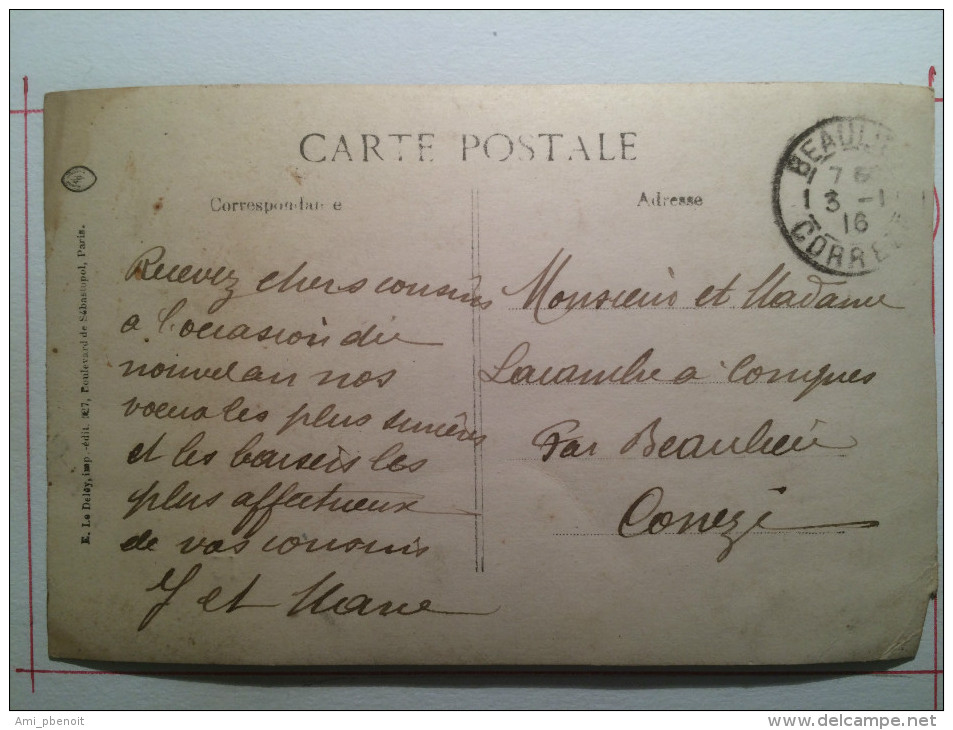 CARTE POSTALE
Correspondance
Adresse
BEAULIEU
7
13 -1
16
CORREZE
Recevez chers cousins
a l'occasion du
nouvel an nos
voeux les plus sincères
et les baisers les
plus affectueux
de vos cousins
J et Marie
Monsieur et Madame
Lacambre a Conques
Par Beaulieu
Corrèze
E. Le Deley, imp.-édit. 127, Boulevard de Sébastopol, Paris.
Ami_pbenoit
www.delcampe.net